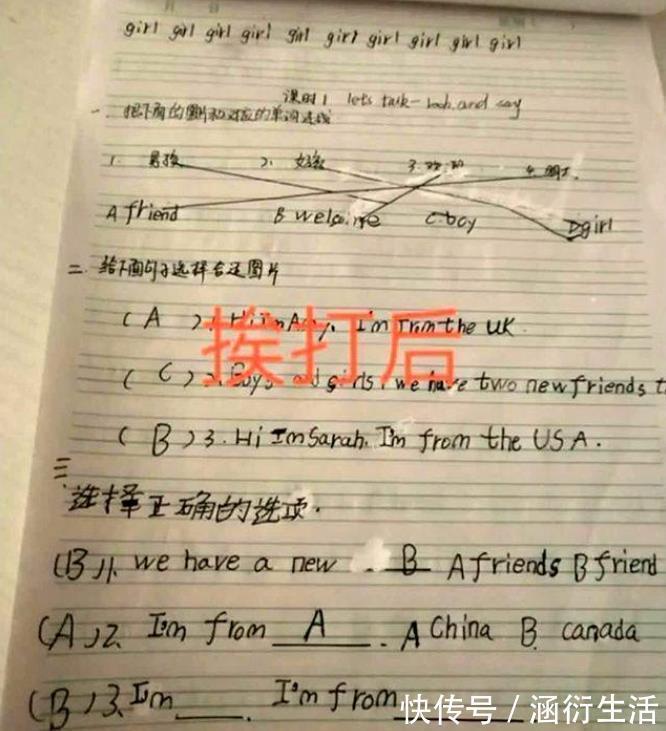 girl girl girl girl girl girl girl girl girl girl
课时1 let's talk-look and say
一、把下面的图片和对应的单词连线
1. 男孩 2. 女孩 3. 欢迎 4. 朋友
A friend B welcome C boy D girl
二、给下面句子选择合适图片
(A)1. Hi I'm Amy. I'm from the UK.
(C)2. Boys and girls, we have two new friends t
挨打后
(B)3. Hi I'm Sarah. I'm from the USA.
三
选择正确的选项.
(B)1. we have a new B A friends B friend
(A)2. I'm from A. A China B. canada
(B)3. I'm ___. I'm from
快传号/涵衍生活